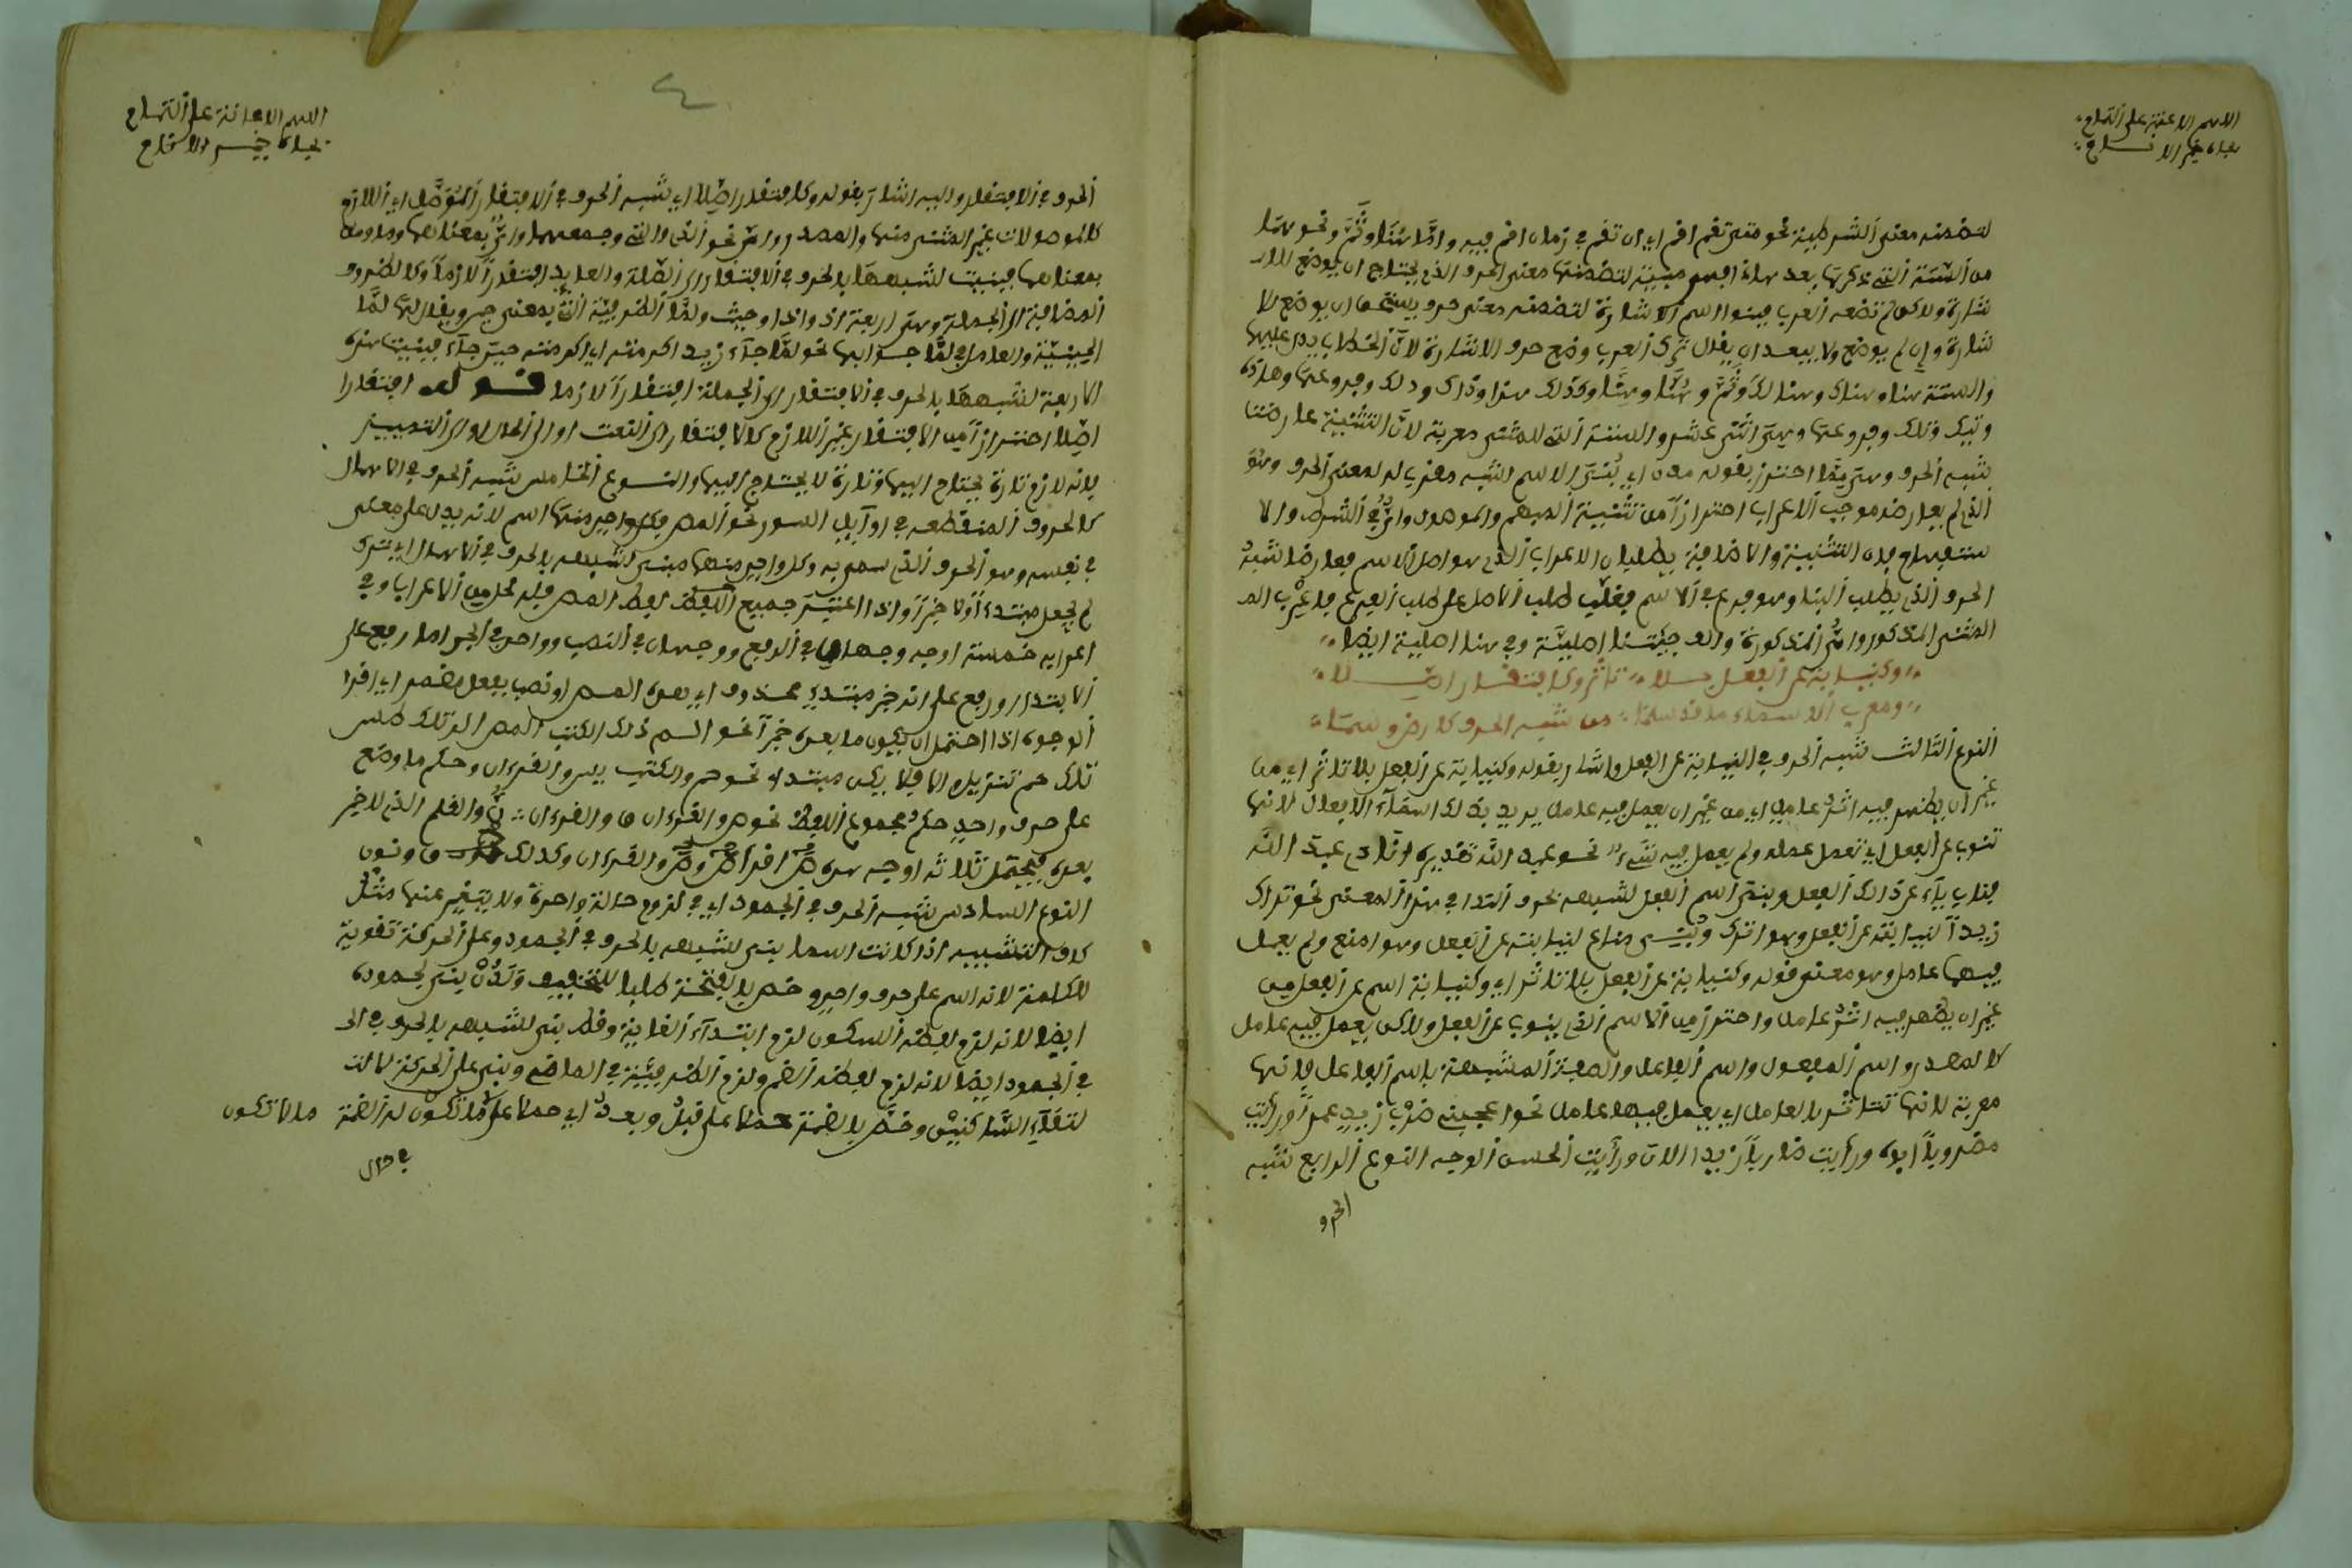 اللهم الاعانة على التمام
بجاه خير الانام
لتضمنه معنى الشرطية نحو متى تقم اقم اي ان تقم في زمان اقم فيه واما هنا وثم ونحوهما
من الستة التي ذكرتها بعد هاذا فهي مبنية لتضمنها معنى الحرف الذي يحتاج ان يوضع للا
شارة ولاكن لم تضعه العرب فبنوا اسم الاشارة لتضمنه معنى حرف يستحق ان يوضع للا
شارة وان لم يوضع ولا يبعد ان يقال ترك العرب وضع حرف الاشارة لان الخطاب يدل عليها
والستة هنا وهناك وهنالك وثم وهنا وهنا وكذلك هذا وذاك وذلك وفروعها وهاذه
وتيك وتلك وفروعها وهي اثنى عشر والستة التي للمثنى معربة لان التثنية عارضت
شبه الحرف وهي مما احترز بقوله مدن اي يبنى الاسم الشبه مقرب له لمعنى الحرف وهو
الذي لم يعارضه موجب الاعراب احترازا من تثنية المبهم والموصول واي في الشرط والا
ستفهام فان التثنية والاضافة يطلبان الاعراب الذي هو اصل الاسم فعارضا شبه
الحرف الذي يطلب البنا وهو فرع في الاسم فغلب طلب الاصل على طلب الفرع فاعرب الم
المثنى المذكور واي المذكورة والف جئتنا اصلية وفي هنا اصلية ايضا
وكنيابة عن الفعل بلا تاثر وكافتقار اصلا
ومعرب الاسماء ما قد سلما من شبه الحرف كارض وسما
النوع الثالث شبه الحرف في النيابة عن الفعل واشار بقوله وكنيابة عن الفعل بلا تاثر اي من
غير ان يظهر فيه اثر عامل اي من غير ان يعمل فيه عامل يريد بذلك اسماء الافعال لانها
تنوب عن الفعل اي تعمل عمله ولم يعمل فيه شيء نحو عبد الله تقديره انادي عبد الله
فناب ياء عن ذالك الفعل وبني اسم الفعل لشبهه بحرف الندا في هذا المعنى نحو تراك
زيدا لنيابته عن الفعل وهو اترك وبنى مناع لنيابته عن الفعل وهو امنع ولم يعمل
فيها عامل وهو معنى قوله وكنيابة عن الفعل بلا تاثر اي وكنيابة اسم عن الفعل من
غير ان يظهر فيه اثر عامل واحترز من الاسم الذي ينوب عن الفعل ولاكن يعمل فيه عامل
كالمصدر واسم المفعول واسم الفاعل والصفة المشبهة باسم الفاعل فانها
معربة لانها تتاثر بالعامل اي يعمل فيها عامل نحو اعجبني ضرب زيد عمرا ورأيت
مضروبا ابوه ورأيت ضاربا زيدا الان ورأيت الحسن الوجه النوع الرابع شبه
الحرف
اللهم الاعانة على التمام
بجاه خير الانام
٤
الحرف في الافتقار واليه اشار بقوله وكافتقار اصلا اي شبه الحرف في الافتقار المؤصل اي اللازم
كالموصولات غير المثنى منها والمصدر واي نحو الذي والتي وجمعهما واي بمعناهما وما ومن
بمعناهما فبنيت لشبهها بالحرف في الافتقار الى الصلة والعايد افتقارا لازما وكالظروف
المضافة الى الجملة وهي اربعة اذ واذا وحيث ولما الظرفية التي بمعنى حين ويقال لها لما
الحينية والعامل في لما جوابها نحو لما جاء زيد اكرمته اي اكرمته حين جاء فبنيت هذه
الاربعة لشبهها بالحرف في الافتقار الى الجملة افتقارا لازما قوله افتقارا
اصلا احترازا من الافتقار غير اللازم كالافتقار الى النعت او الى الحال او الى التمييز
فانه لازم تارة يحتاج اليها وتارة لا يحتاج اليها والنوع الخامس شبه الحرف في الاهمال
كالحروف المقطعة في اوايل السور نحو المص فكل واحد منها اسم لانه يدل على معنى
في نفسه وهو الحرف الذي سمي به وكل واحد منها مبني لشبهه بالحرف في الاهمال اي ترك
لم يجعل مبتدءا ولا خبرا واذا اعتبر جميع اللفظ لفظ المص فله محل من الاعراب وفي
اعرابه خمسة اوجه وجهان في الرفع ووجهان في النصب وواحد في الجر اما رفع على
الابتدا او رفع على انه خبر مبتدإ محذوف اي هذه المص او نصب بفعل مضمر اي اقرا
الوجوه اذا احتمل ان يكون ما بعده خبرا نحو الم ذلك الكتب المر تلك طس
تلك حم تنزيل والا فلا يكن مبتدا نحو حم والكتب يس والقرءان وحكم ما وضع
على حرف واحد حكم مجموع اللفظ نحو ص والقرءان ق والقرءان ن والقلم الذي لا خبر
بعده فيحتمل ثلاثة اوجه هذه ص اقرا ص وص والقرءان وكذلك ق ونون
النوع السادس شبه الحرف في الجمود اي في لزوم حالة واحدة ولا يتغير عنها مثل
كاف التشبيه اذا كانت اسما بني لشبهه بالحرف في الجمود وعلى الحركة تقوية
للكلمة لانه اسم على حرف واحد وخص بالفتحة طلبا للتخفيف ولدن بني لجموده
ايضا لانه لزم لفظه السكون لزم ابتداء الغاية وقط بني لشبهه بالحرف في ال
في الجمود ايضا لانه لزم لفظه الضم ولزم الظرفية في الماضي وبني على الحركة لا
لتقاء الساكنين وخص بالضمة حملا على قبل وبعد اي حملا على ما تكون له الضمة مالا تكون
في حال